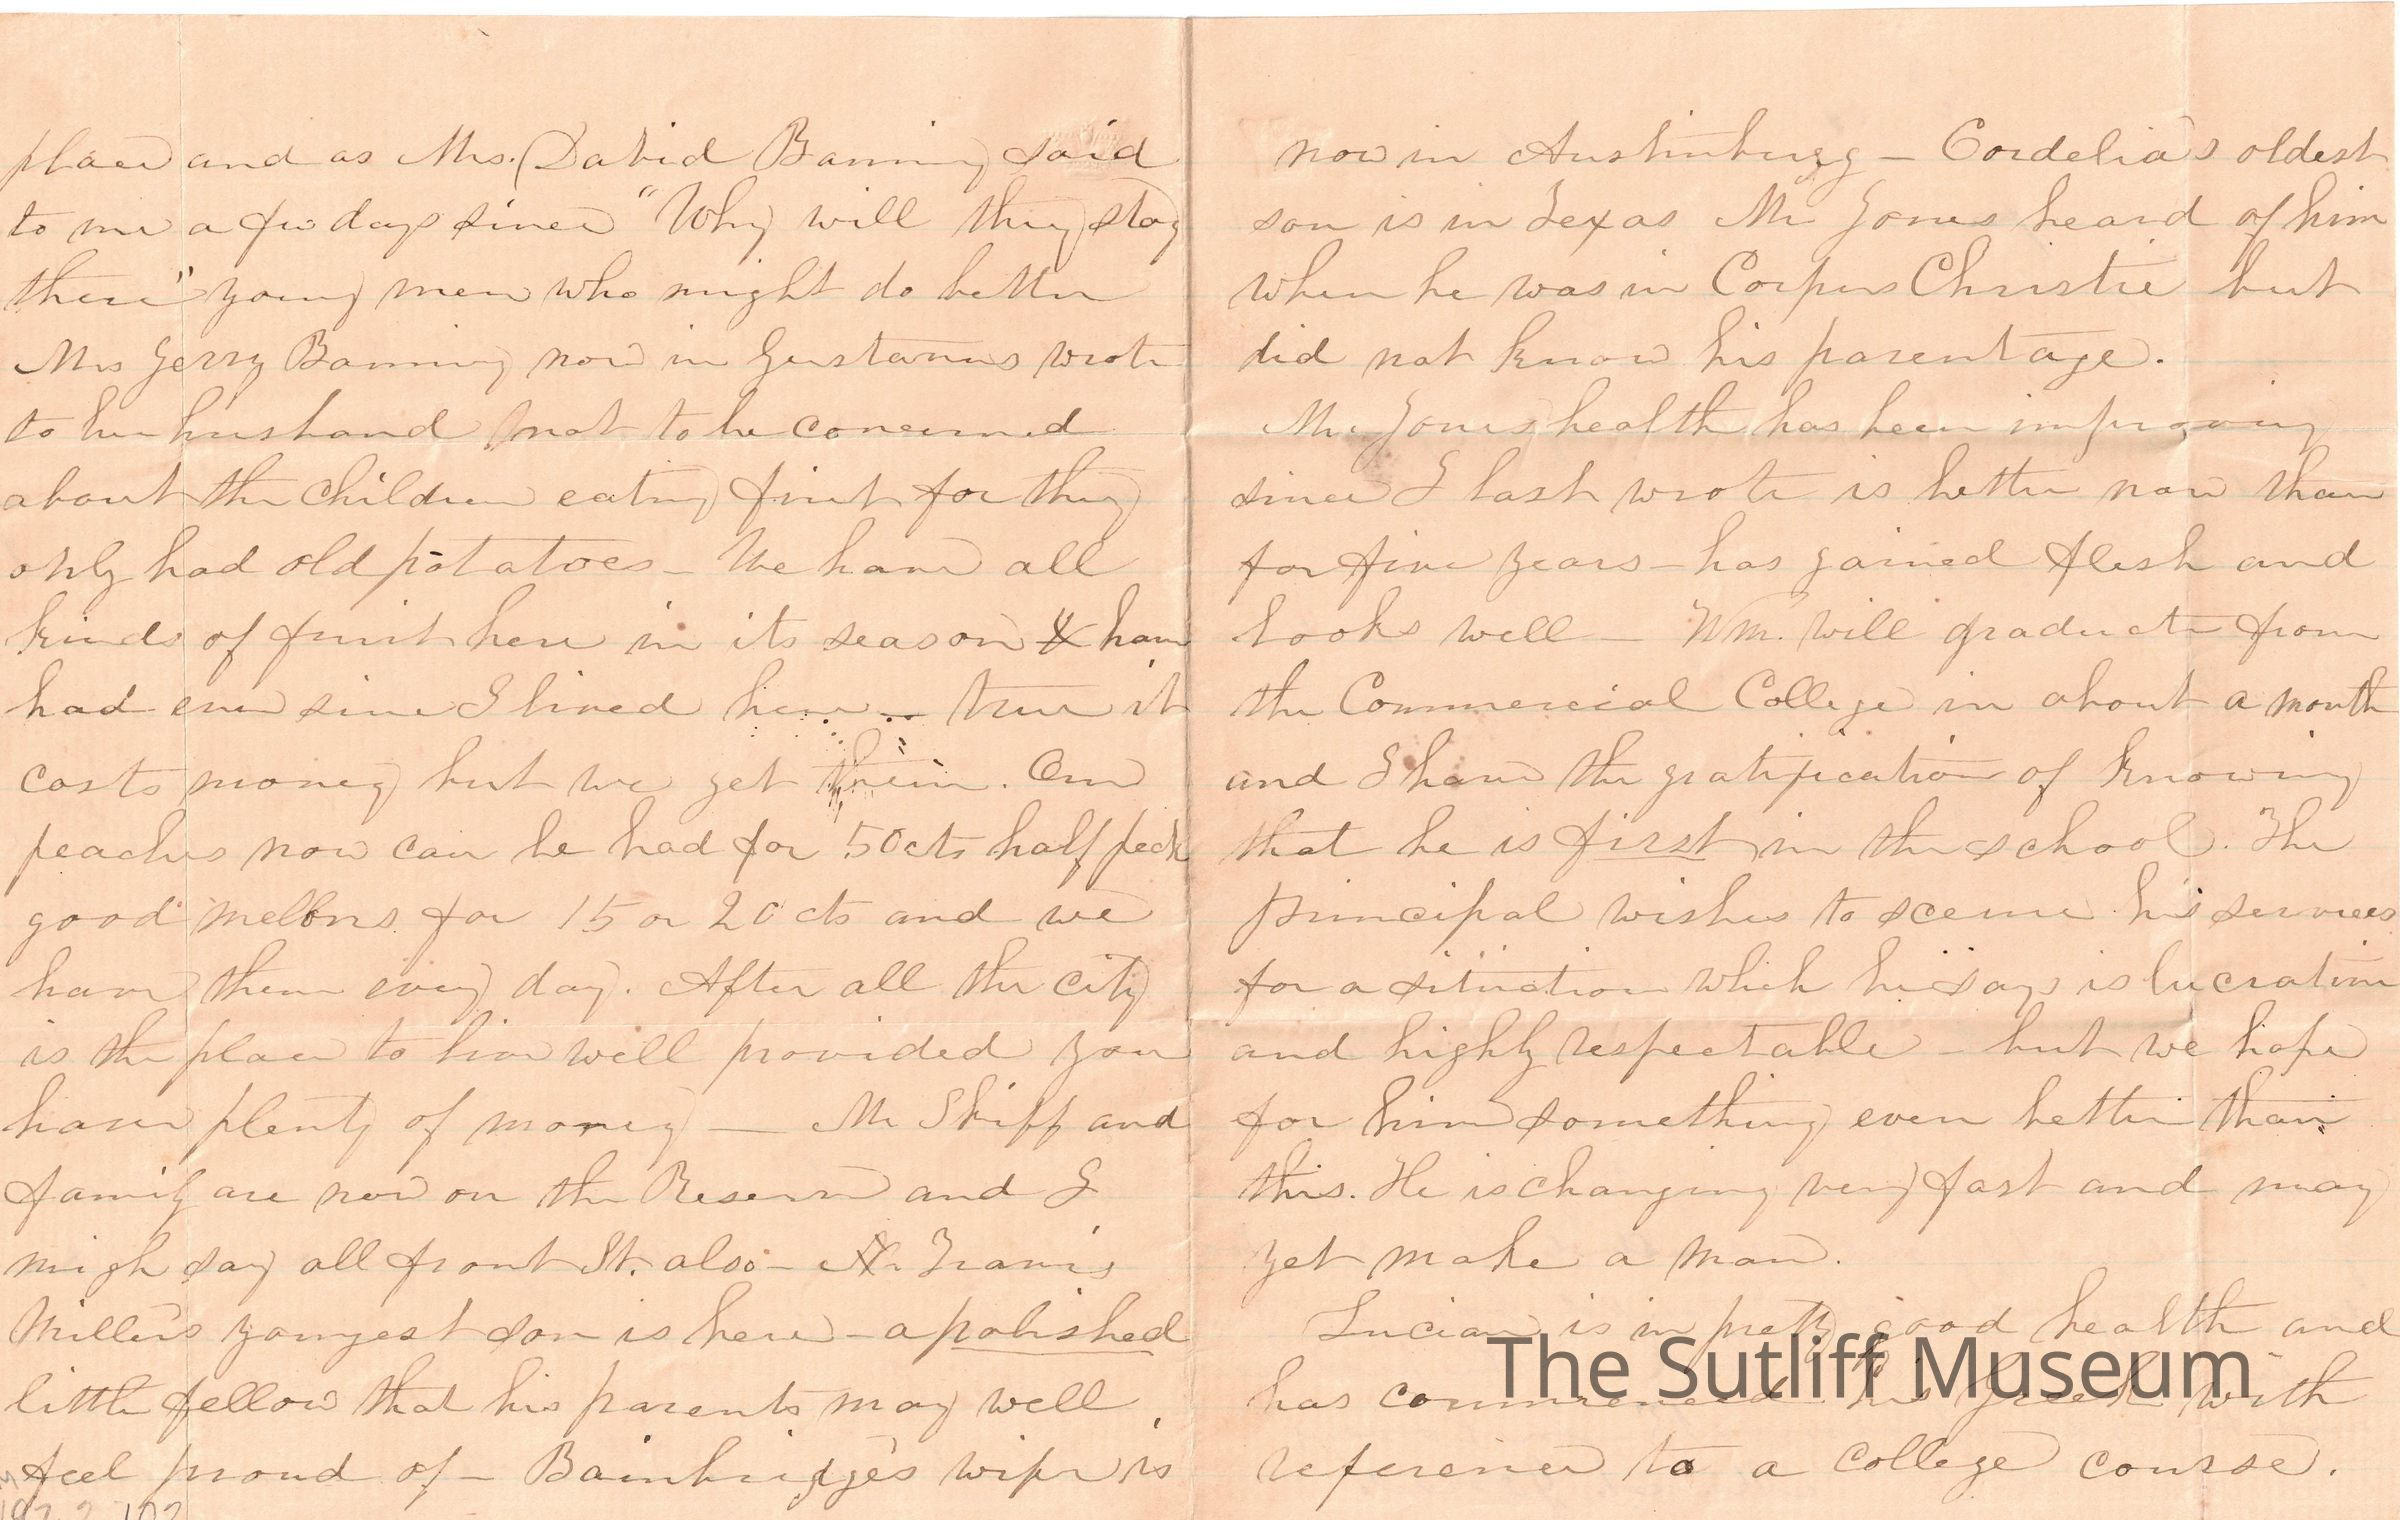 place and as Mrs. David Banning said
to me a few days since "Why will they stay
there" young men who might do better
Mrs Jerry Banning now in Gustavus wrote
to her husband not to be concerned
about the children eating fruit for they
only had old potatoes - We have all
kinds of fruit here in its season & have
had ever since I lived here - true it
costs money but we get them. Our
peaches now can be had for 50cts half peck
good mellons for 15 or 20 cts and we
have them every day. After all the city
is the place to live well provided you
have plenty of money - Mr Skiff and
family are now on the Reserve and I
migh say all front St. also - Mr. Travis
Miller's youngest son is here - a polished
little fellow that his parents may well
feel proud of - Bainbridge's wife is
192.2.102
now in Austinburgg - Cordelia's oldest
son is in Texas Mr Jones heard of him
when he was in Corpus Christie but
did not know his parentage.
Mr. Jones health has been improving
since I last wrote is better now than
for five years - has gained flesh and
looks well - Wm. will graduate from
the Commercial College in about a month
and I have the gratification of knowing
that he is first in the school. The
principal wishes to secure his services
for a situation which he says is lucrative
and highly respectable - but we hope
for him something even better than
this. He is changing very fast and may
yet make a man.
Lucian is in pretty good health and
has commenced his Greek with
reference to a college course.
The Sutliff Museum